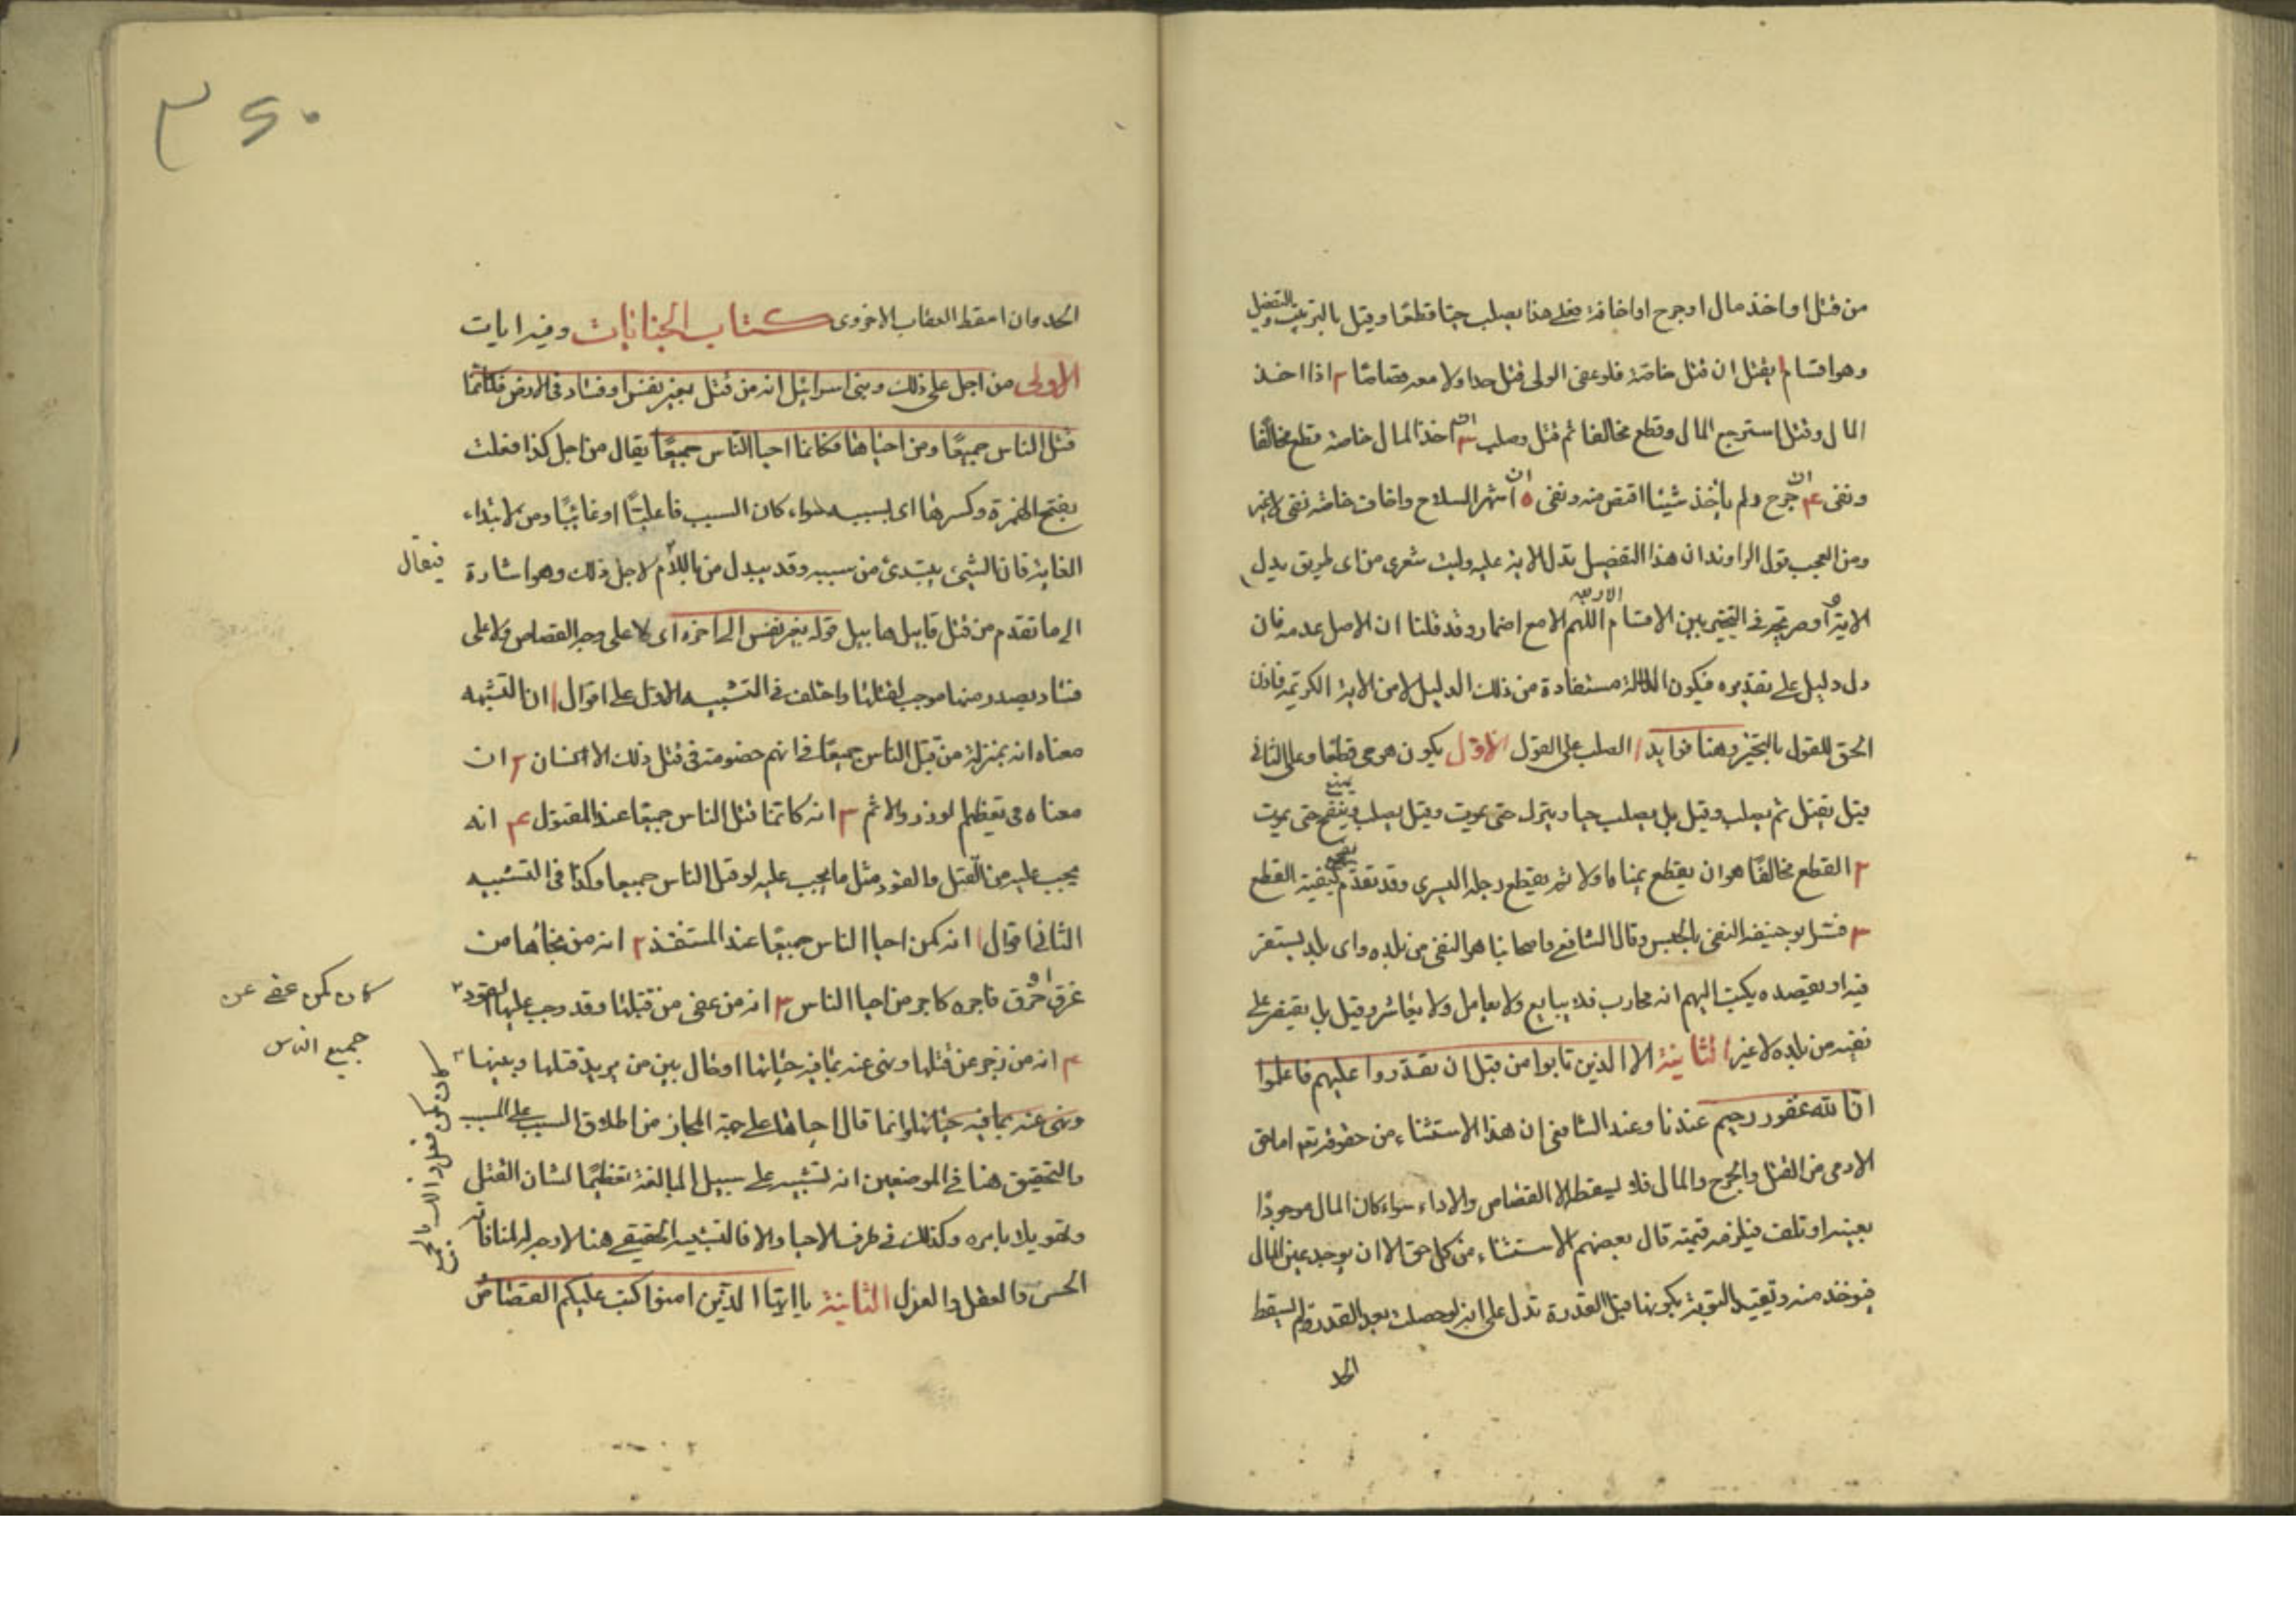 من قتل او اخذ مال او جرح او اخافة فعلى هذا يصلب حيا قطعا وقيل بالترتيب والتفصيل
وهو اقسام ا يقتل ان قتل خاصة فلو عفى الولى قتل حدا ولا معه قصاصا ٢ اذا اخذ
المال وقتل استرجع المال وقطع مخالفا ثم قتل وصلب ٣ ان اخذ المال خاصة قطع مخالفا
ونفى ۴ ان جرح ولم ياخذ شيئا اقتص منه ونفى ۵ ان شهر السلاح واخاف خاصة نفى لا غير
ومن العجب قول الراوندى ان هذا التفصيل تدل الاية عليه وليت شعرى من اى طريق يدل
الاية او صريحة فى التخيير بين الاقسام الاربعة اللهم الا مع اضمار وقد قلنا ان الاصل عدمه فان
دل دليل على تقديره فيكون الدلالة مستفادة من ذلك الدليل لا من الاية الكريمة فاذن
الحق القول بالتخيير وهنا فوايد ا الصلب على القول الاول يكون هو حى قطعا وعلى الثانى
قيل يقتل ثم يصلب وقيل بل يصلب حيا ويترك حتى يموت وقيل يصلب ويبعج حتى يموت
٢ القطع مخالفا هو ان يقطع يمناه اولا ثم يقطع رجله اليسرى وقد تقدم كيفية القطع
٣ فسر ابو حنيفة النفى بالحبس وقال الشافعى واصحابنا هو النفى من بلده واى بلد يستقر
فيه او يقصده يكتب اليهم انه محارب فلا يبايع ولا يعامل ولا يعاشر وقيل بل يقتصر على
نفيه من بلده لا غير الثانية الا الذين تابوا من قبل ان تقدروا عليهم فاعلموا
ان الله غفور رحيم عندنا وعند الشافعى ان هذا الاستثناء من حقوقه تعم اما حق
الادمى من القتل والجرح والمال فلا يسقط الا القصاص والاداء سواء كان المال موجودا
بعينه او تلف فيلزمه قيمته قال بعضهم الاستثناء من كل حق الا ان يوجد عين المال
فيوخذ منه وتقييد التوبة بكونها قبل القدرة تدل على انه لو حصلت بعد القدرة لم يسقط
الحد
٣٥٠
الحد وان اسقط العقاب الاخروى كتاب الجنايات وفيه ايات
الاولى من اجل ذلك كتبنا على بنى اسرائيل انه من قتل نفسا بغير نفس او فساد فى الارض فكانما
قتل الناس جميعا ومن احياها فكانما احيا الناس جميعا يقال من اجل كذا فعلت
بفتح الهمزة وكسرها اى بسببه سواء كان السبب فاعليا او غائيا ومن لابتداء
الغاية فان الشىء يبتدئ من سببه وقد يبدل من باللام لاجل ذلك وهو اشارة
فيقال
الى ما تقدم من قتل قابيل هابيل قوله بغير نفس الى اخره اى لا على وجه القصاص ولا على
فساد يصدر منها موجب لقتلها واختلف فى التشبيه الاول على اقوال ا ان التشبيه
معناه انه بمنزلة من قتل الناس جميعا فى انهم خصومة فى قتل ذلك الانسان ٢ ان
معناه فى تعظيم الوزر والاثم ٣ انه كانما قتل الناس جميعا عند المقتول ۴ انه
يجب عليه من القتل والقود مثل ما يجب عليه لو قتل الناس جميعا وكذا فى التشبيه
الثانى اقوال ا انه كمن احيا الناس جميعا عند المستنقذ ٢ انه من نجاها من
غرق او حرق فاجره كاجر من احيا الناس ٣ انه من عفى من قتلها وقد وجب عليها القود
كان كمن عفى عن
جميع الناس
۴ انه من زجر عن قتلها ونهى عنه بما فيه حياتها او حال بين من يريد قتلها وبينها
ونهى عنه بما فيه حياتها وانما قال احياها على جهة المجاز من اطلاق السبب على المسبب
والتحقيق هنا فى الموضعين انه تشبيه على سبيل المبالغة تعظيما لشان القتل
وتهويلا بامره وكذلك فى طرف الاحيا والا فالتشبيه الحقيقى هنا لا وجه له لمنافاته
الحس والعقل والعدل الثانية يا ايها الذين امنوا كتب عليكم القصاص
كان كمن فعل ذلك بالجميع